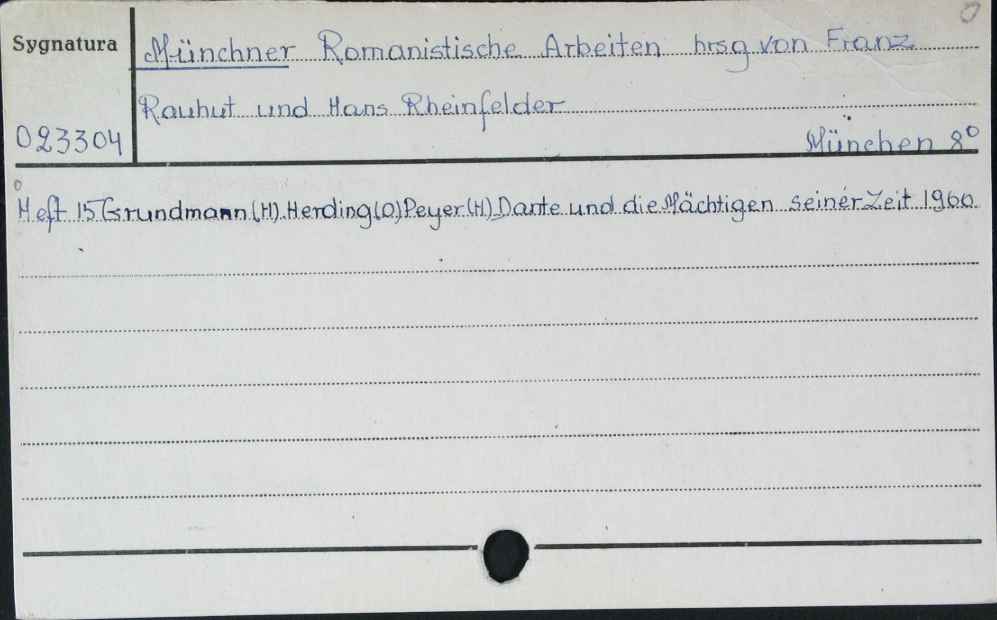 Sygnatura
Münchner Romanistische Arbeiten hrsg von Franz
Rauhut und Hans Rheinfelder
023304
München 8°
Heft 15 Grundmann(H).Herding(O)Peyer(H) Dante und die Mächtigen seiner Zeit 1960